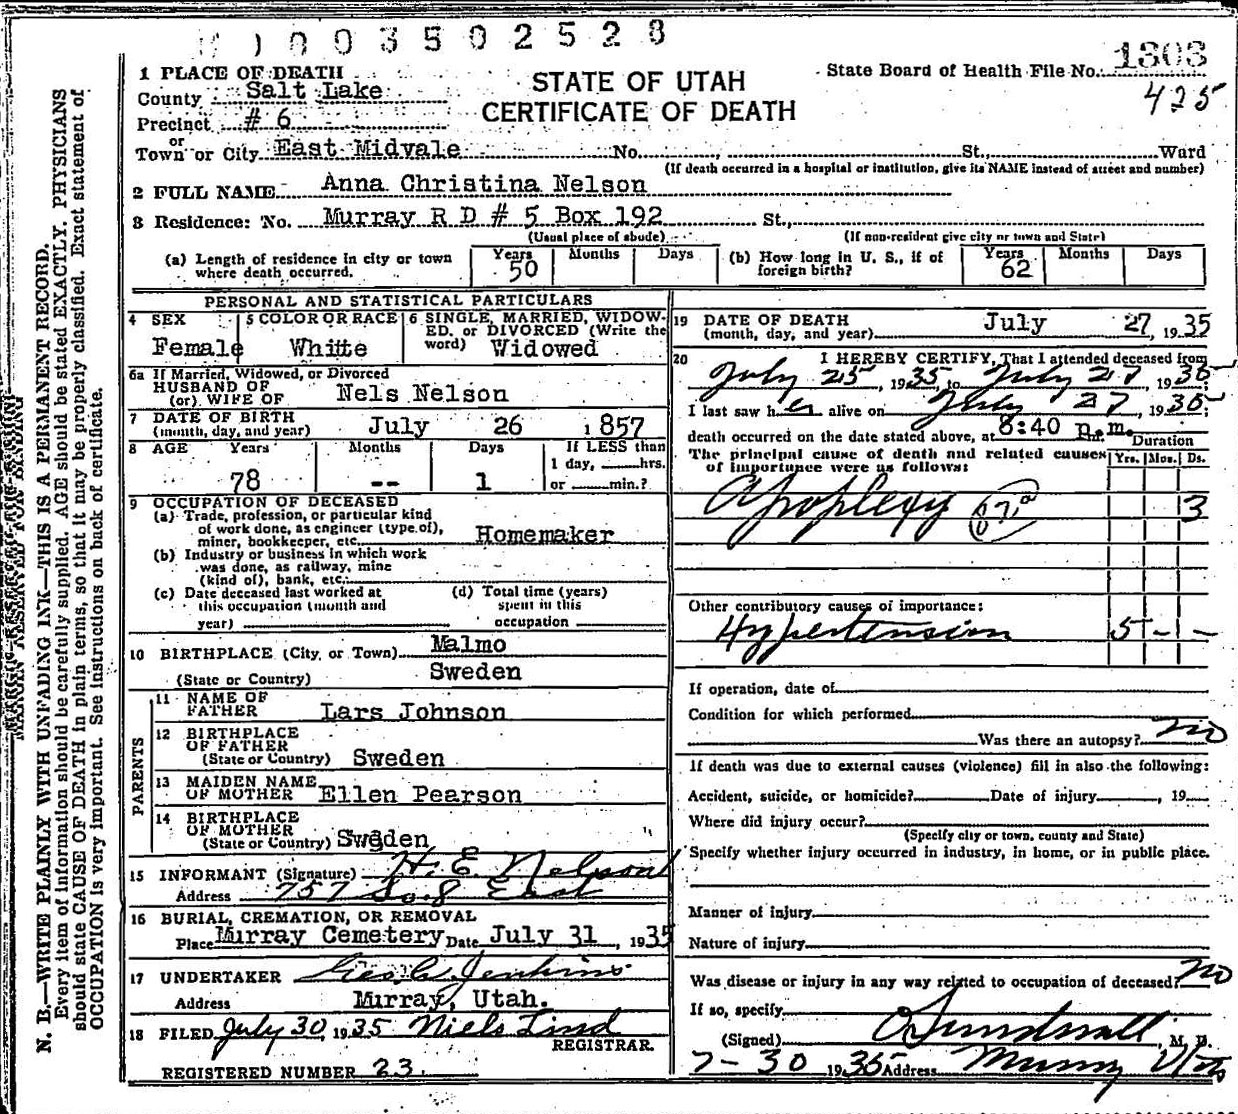 0 0 3 5 0 2 5 2 8
1 PLACE OF DEATH
County Salt Lake
Precinct # 6
or
Town or City East Midvale No. , St., Ward
(If death occurred in a hospital or institution, give its NAME instead of street and number)
STATE OF UTAH
CERTIFICATE OF DEATH
State Board of Health File No. 1303
425
2 FULL NAME Anna Christina Nelson
3 Residence: No. Murray R D # 5 Box 192 St.,
(Usual place of abode) (If non-resident give city or town and State)
(a) Length of residence in city or town where death occurred. Years 50 Months Days
(b) How long in U. S., if of foreign birth? Years 62 Months Days
PERSONAL AND STATISTICAL PARTICULARS
4 SEX Female
5 COLOR OR RACE White
6 SINGLE, MARRIED, WIDOWED, or DIVORCED (Write the word) Widowed
6a If Married, Widowed, or Divorced
HUSBAND OF
(or) WIFE OF Nels Nelson
7 DATE OF BIRTH
(month, day, and year) July 26 1857
8 AGE Years Months Days If LESS than
78 -- 1 1 day, hrs.
or min.?
9 OCCUPATION OF DECEASED
(a) Trade, profession, or particular kind
of work done, as engineer (type of),
miner, bookkeeper, etc. Homemaker
(b) Industry or business in which work
was done, as railway, mine
(kind of), bank, etc.
(c) Date deceased last worked at
this occupation (month and
year)
(d) Total time (years)
spent in this
occupation
10 BIRTHPLACE (City or Town) Malmo
(State or Country) Sweden
PARENTS
11 NAME OF
FATHER Lars Johnson
12 BIRTHPLACE
OF FATHER
(State or Country) Sweden
13 MAIDEN NAME
OF MOTHER Ellen Pearson
14 BIRTHPLACE
OF MOTHER
(State or Country) Sweden
15 INFORMANT (Signature) H. E. Nelson
Address 757 So. 8 East
16 BURIAL, CREMATION, OR REMOVAL
Place Murray Cemetery Date July 31, 1935
17 UNDERTAKER Geo. C. Jenkins
Address Murray, Utah.
18 FILED July 30, 1935 Niels Lind
REGISTRAR.
REGISTERED NUMBER 23.
19 DATE OF DEATH
(month, day, and year) July 27, 1935
20 I HEREBY CERTIFY, That I attended deceased from
July 25, 1935, to July 27 1935;
I last saw her alive on July 27, 1935;
death occurred on the date stated above, at 8:40 p.m.
Duration
The principal cause of death and related causes Yrs. Mos. Ds.
of importance were as follows:
Apoplexy 3
Other contributory causes of importance:
Hypertension 5 - -
If operation, date of
Condition for which performed
Was there an autopsy? no
If death was due to external causes (violence) fill in also the following:
Accident, suicide, or homicide? Date of injury , 19
Where did injury occur?
(Specify city or town, county and State)
Specify whether injury occurred in industry, in home, or in public place.
Manner of injury
Nature of injury
Was disease or injury in any way related to occupation of deceased? no
If so, specify
(Signed) Sundwall, M. D.
7-30 1935 Address Murray Utah
N. B.—WRITE PLAINLY WITH UNFADING INK—THIS IS A PERMANENT RECORD.
Every item of information should be carefully supplied. AGE should be stated EXACTLY. PHYSICIANS
should state CAUSE OF DEATH in plain terms, so that it may be properly classified. Exact statement of
OCCUPATION is very important. See instructions on back of certificate.
MARGIN RESERVED FOR BINDING